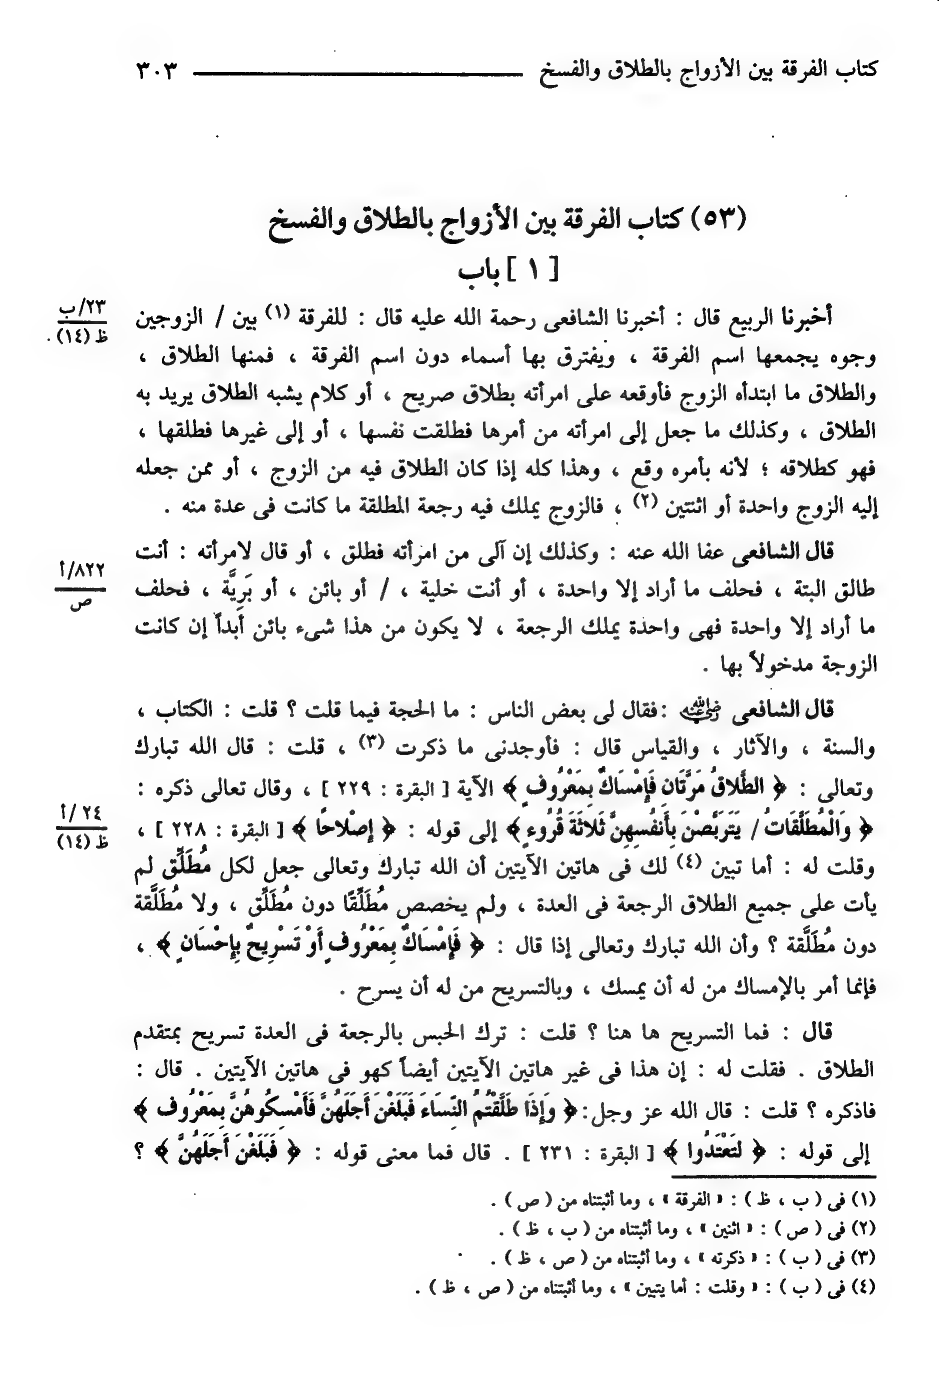 كتاب الفرقة بين الأزواج بالطلاق والفسخ ٣٠٣
(٥٣) كتاب الفرقة بين الأزواج بالطلاق والفسخ
[ ١ ] باب
أخبرنا الربيع قال : أخبرنا الشافعى رحمة الله عليه قال : للفرقة (١) بين / الزوجين
٢٣/ب
ظ (١٤)
وجوه يجمعها اسم الفرقة ، ويفترق بها أسماء دون اسم الفرقة ، فمنها الطلاق ،
والطلاق ما ابتدأه الزوج فأوقعه على امرأته بطلاق صريح ، أو كلام يشبه الطلاق يريد به
الطلاق ، وكذلك ما جعل إلى امرأته من أمرها فطلقت نفسها ، أو إلى غيرها فطلقها ،
فهو كطلاقه ؛ لأنه بأمره وقع ، وهذا كله إذا كان الطلاق فيه من الزوج ، أو ممن جعله
إليه الزوج واحدة أو اثنتين (٢) ، فالزوج يملك فيه رجعة المطلقة ما كانت فى عدة منه .
قال الشافعى عفا الله عنه : وكذلك إن آلى من امرأته فطلق ، أو قال لامرأته : أنت
طالق البتة ، فحلف ما أراد إلا واحدة ، أو أنت خلية ، / أو بائن ، أو بَرِيَّة ، فحلف
٨٢٢/أ
ص
ما أراد إلا واحدة فهى واحدة يملك الرجعة ، لا يكون من هذا شىء بائن أبداً إن كانت
الزوجة مدخولاً بها .
قال الشافعى رضي الله عنه : فقال لى بعض الناس : ما الحجة فيما قلت ؟ قلت : الكتاب ،
والسنة ، والآثار ، والقياس قال : فأوجدنى ما ذكرت (٣) ، قلت : قال الله تبارك
وتعالى : ﴿ الطَّلاقُ مَرَّتَانِ فَإِمْسَاكٌ بِمَعْرُوفٍ ﴾ الآية [ البقرة : ٢٢٩ ] ، وقال تعالى ذكره :
﴿ وَالْمُطَلَّقَاتُ / يَتَرَبَّصْنَ بِأَنفُسِهِنَّ ثَلاثَةَ قُرُوءٍ ﴾ إلى قوله : ﴿ إِصْلاحًا ﴾ [ البقرة : ٢٢٨ ] ،
٢٤ /أ
ظ (١٤)
وقلت له : أما تبين (٤) لك فى هاتين الآيتين أن الله تبارك وتعالى جعل لكل مُطَلِّقٍ لم
يأت على جميع الطلاق الرجعة فى العدة ، ولم يخصص مُطَلِّقًا دون مُطَلِّق ، ولا مُطَلَّقة
دون مُطَلَّقة ؟ وأن الله تبارك وتعالى إذا قال : ﴿ فَإِمْسَاكٌ بِمَعْرُوفٍ أَوْ تَسْرِيحٌ بِإِحْسَانٍ ﴾ ،
فإنما أمر بالإمساك من له أن يمسك ، وبالتسريح من له أن يسرح .
قال : فما التسريح ها هنا ؟ قلت : ترك الحبس بالرجعة فى العدة تسريح بمتقدم
الطلاق . فقلت له : إن هذا فى غير هاتين الآيتين أيضاً كهو فى هاتين الآيتين . قال :
فاذكره ؟ قلت : قال الله عز وجل: ﴿ وَإِذَا طَلَّقْتُمُ النِّسَاءَ فَبَلَغْنَ أَجَلَهُنَّ فَأَمْسِكُوهُنَّ بِمَعْرُوفٍ ﴾
إلى قوله : ﴿ لِتَعْتَدُوا ﴾ [ البقرة : ٢٣١ ] . قال فما معنى قوله : ﴿ فَبَلَغْنَ أَجَلَهُنَّ ﴾ ؟
(١) فى ( ب ، ظ ) : « الفرقة » ، وما أثبتناه من ( ص ) .
(٢) فى ( ص ) : « اثنين » ، وما أثبتناه من ( ب ، ظ ) .
(٣) فى ( ب ) : « ذكرته » ، وما أثبتناه من ( ص ، ظ ) .
(٤) فى ( ب ) : « وقلت : أما يتبين » ، وما أثبتناه من ( ص ، ظ ) .